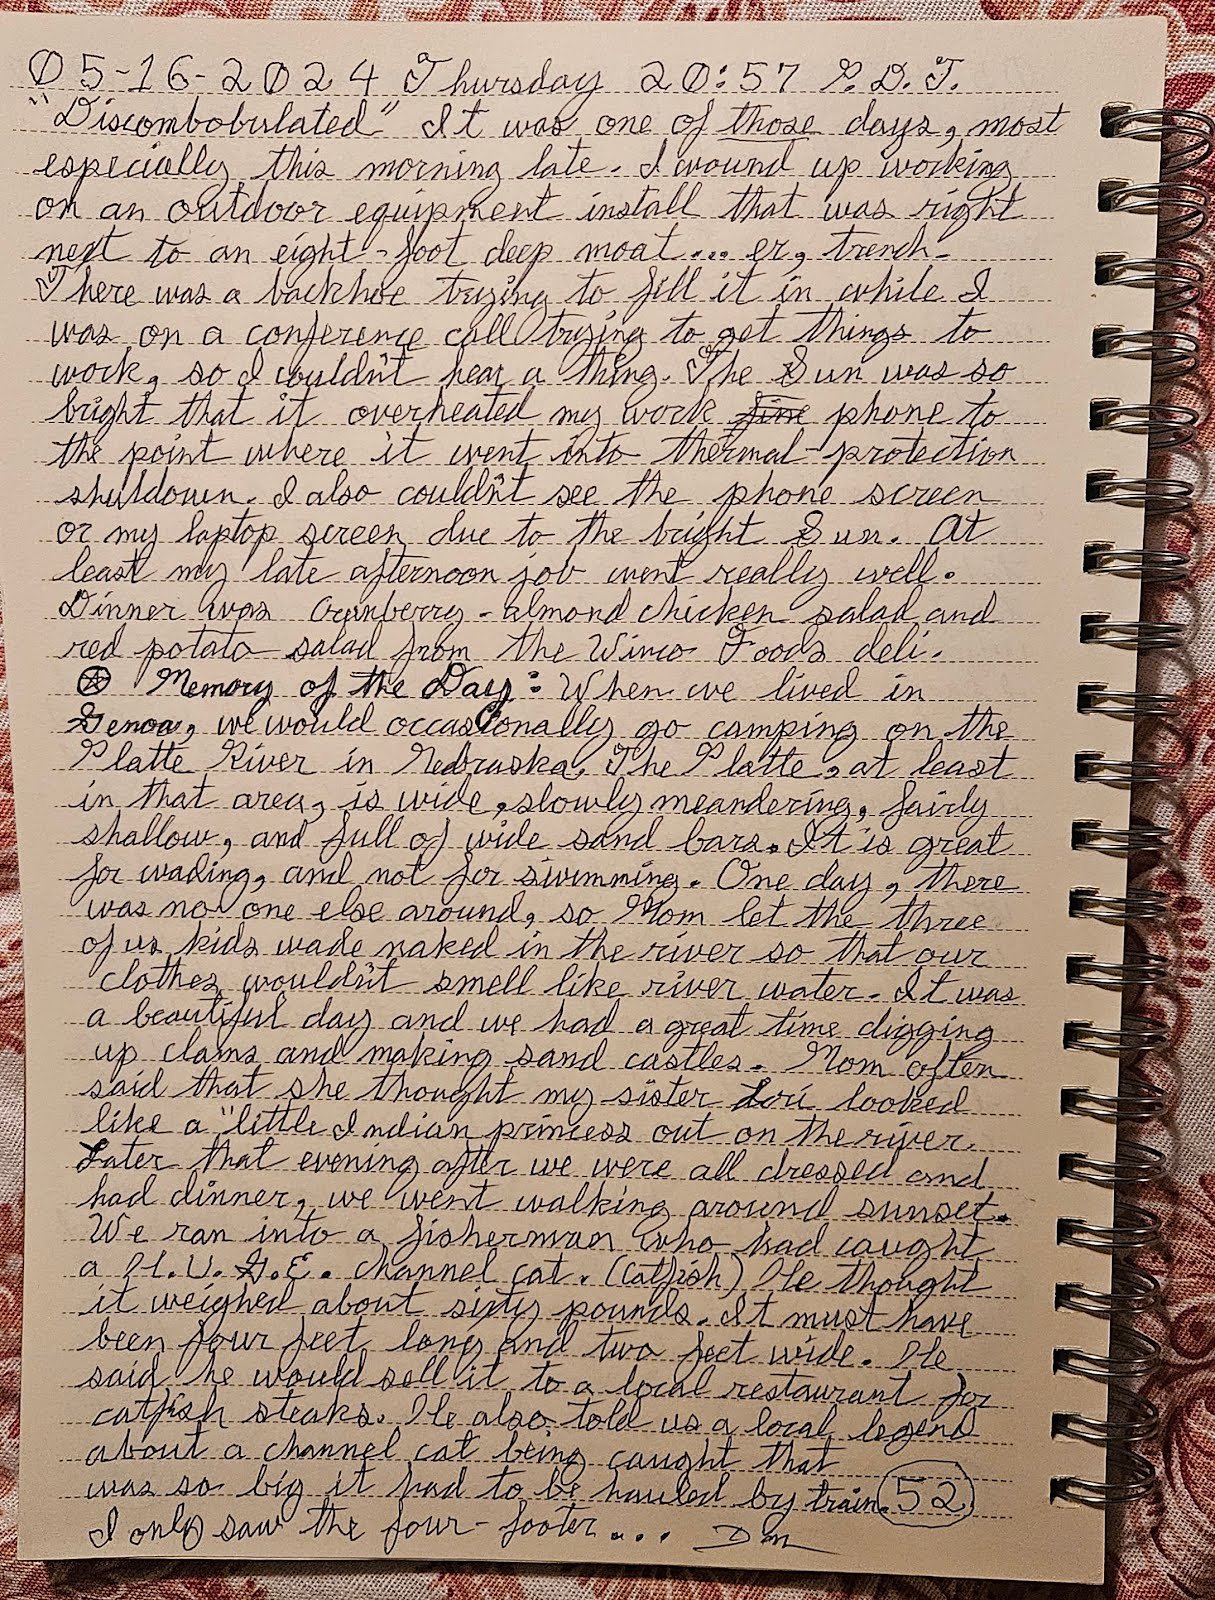 05-16-2024 Thursday 20:57 P.D.T.
"Discombobulated" It was one of those days, most
especially this morning late. I wound up working
on an outdoor equipment install that was right
next to an eight-foot deep moat... er, trench.
There was a backhoe trying to fill it in while I
was on a conference call trying to get things to
work, so I couldn't hear a thing. The Sun was so
bright that it overheated my work fine phone to
the point where it went into thermal-protection
shutdown. I also couldn't see the phone screen
or my laptop screen due to the bright Sun. At
least my late afternoon job went really well.
Dinner was Cranberry-almond chicken salad and
red potato salad from the Winco Foods deli.
Memory of the Day: When we lived in
Genoa, we would occasionally go camping on the
Platte River in Nebraska. The Platte, at least
in that area, is wide, slowly meandering, fairly
shallow, and full of wide sand bars. It is great
for wading, and not for swimming. One day, there
was no one else around, so Mom let the three
of us kids wade naked in the river so that our
clothes wouldn't smell like river water. It was
a beautiful day and we had a great time digging
up clams and making sand castles. Mom often
said that she thought my sister Lori looked
like a "little Indian princess out on the river.
Later that evening after we were all dressed and
had dinner, we went walking around sunset.
We ran into a fisherman who had caught
a H.U.G.E. channel cat. (Catfish) He thought
it weighed about sixty pounds. It must have
been four feet long and two feet wide. He
said he would sell it to a local restaurant for
catfish steaks. He also told us a local legend
about a channel cat being caught that
was so big it had to be hauled by train. 52
I only saw the four-footer... Dan